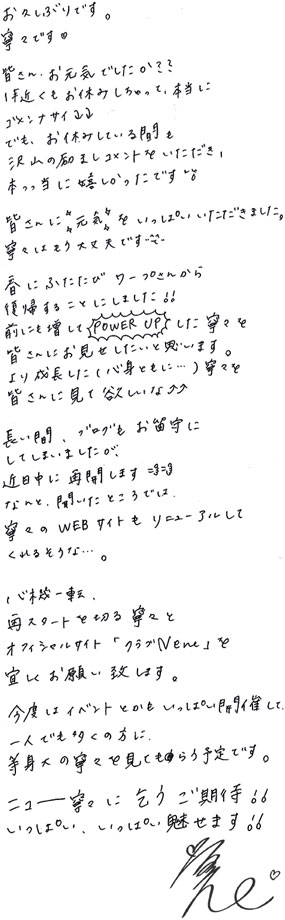 お久しぶりです。
寧々です♡
皆さん、お元気でしたか??
1年近くもお休みしちゃって、本当に
ゴメンナサイ↓↓
でも、お休みしている間も
沢山の励ましコメントをいただき、
本っっ当に嬉しかったです
皆さんに"元気"をいっぱいいただきました。
寧々はもう大丈夫です
春にふたたび ワープさんから
復帰することにしました!!
前にも増して POWER UP した寧々を
皆さんにお見せしたいと思います。
より成長した(心身ともに…)寧々を
皆さんに見て欲しいな↑↑
長い間、ブログもお留守に
してしまいましたが、
近日中に再開します
なんと、聞いたところでは、
寧々のWEBサイトもリニューアルして
くれるそうな…。
心機一転、
再スタートを切る寧々と
オフィシャルサイト「クラブNene」を
宜しくお願い致します。
今度はイベントとかもいっぱい開催して、
一人でも多くの方に、
等身大の寧々を見てもらう予定です。
ニュー寧々に乞うご期待!!
いっぱい、いっぱい魅せます!!